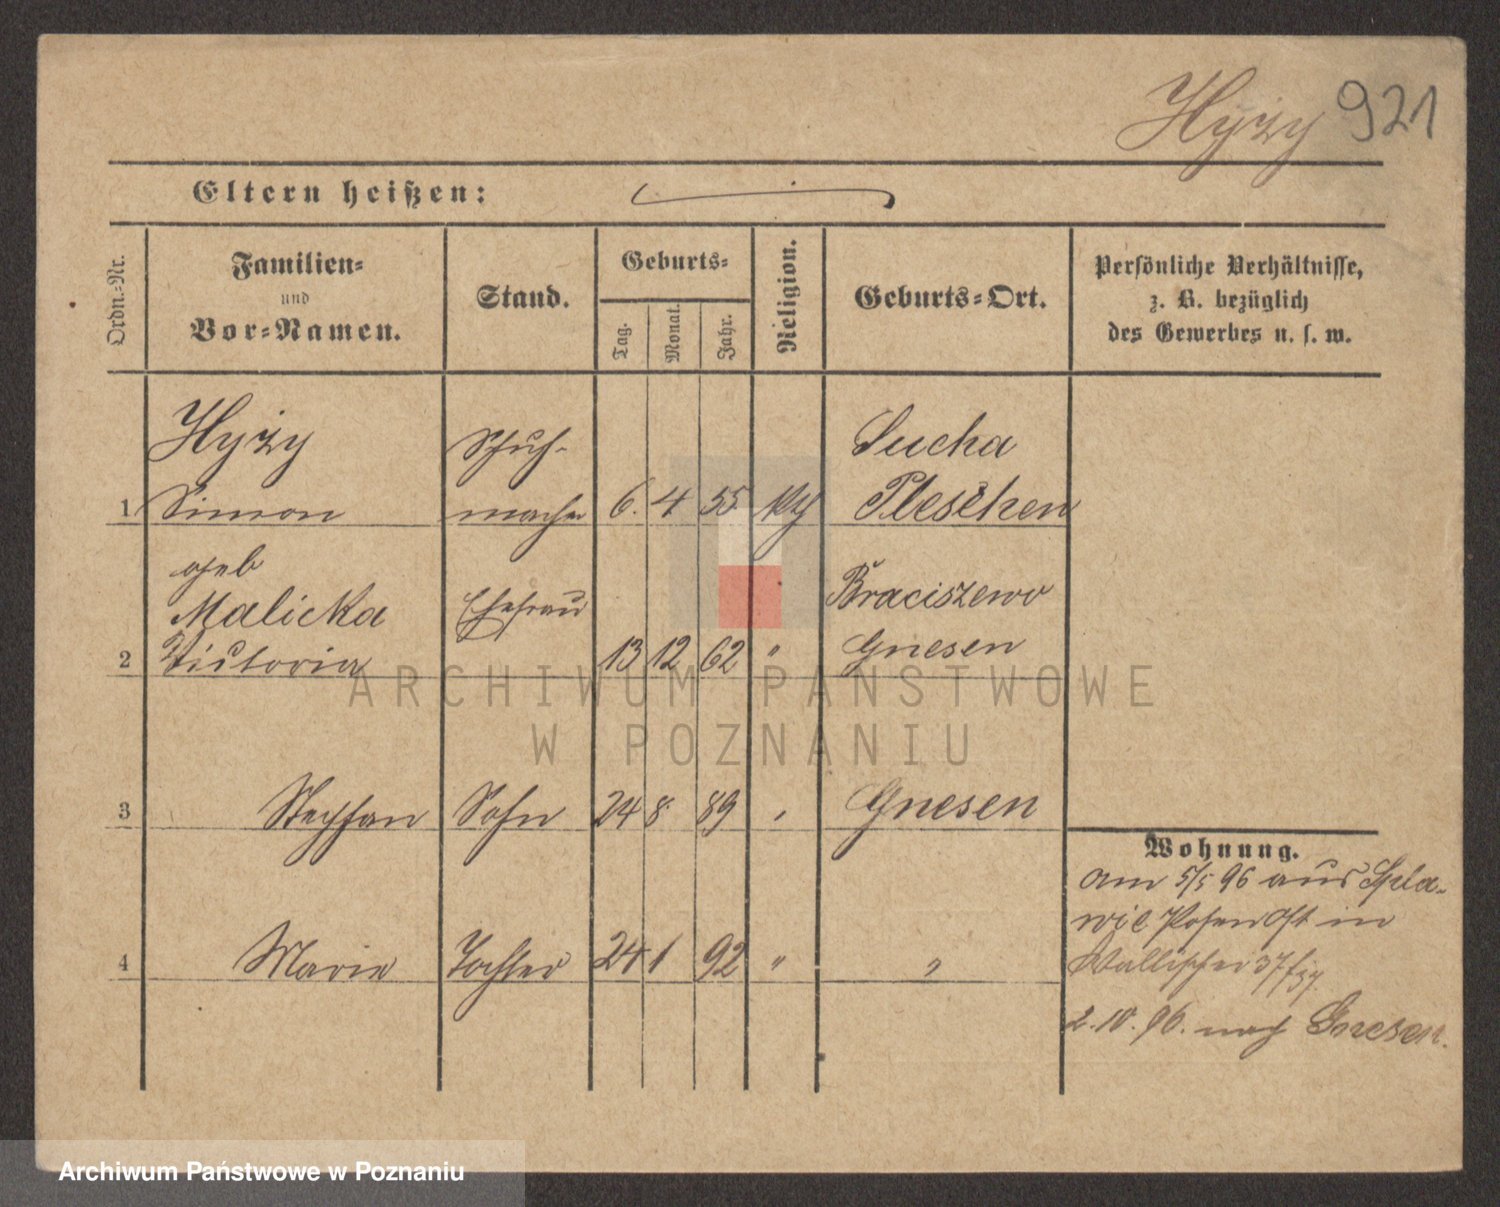 Hyży 921
Eltern heißen:
Ordn.-Nr.
Familien-
und
Vor-Namen.
Stand.
Geburts-
Tag.
Monat.
Jahr.
Religion.
Geburts-Ort.
Persönliche Verhältnisse,
z. B. bezüglich
des Gewerbes u. s. w.
Hyży Schuh- Sucha
1 Simon macher 6. 4 55 kth Pleschen
geb
Malicka Ehefrau Braciszewo
2 Victoria 13 12 62 " Gnesen
3 Stephan Sohn 24 8 89 " Gnesen
Wohnung.
am 5/5 96 aus
Posen Ost in
4 Marie Tochter 24 1 92 " "
Wallischei 37
2.10.96. nach Gnesen.
ARCHIWUM PAŃSTWOWE
W POZNANIU
Archiwum Państwowe w Poznaniu